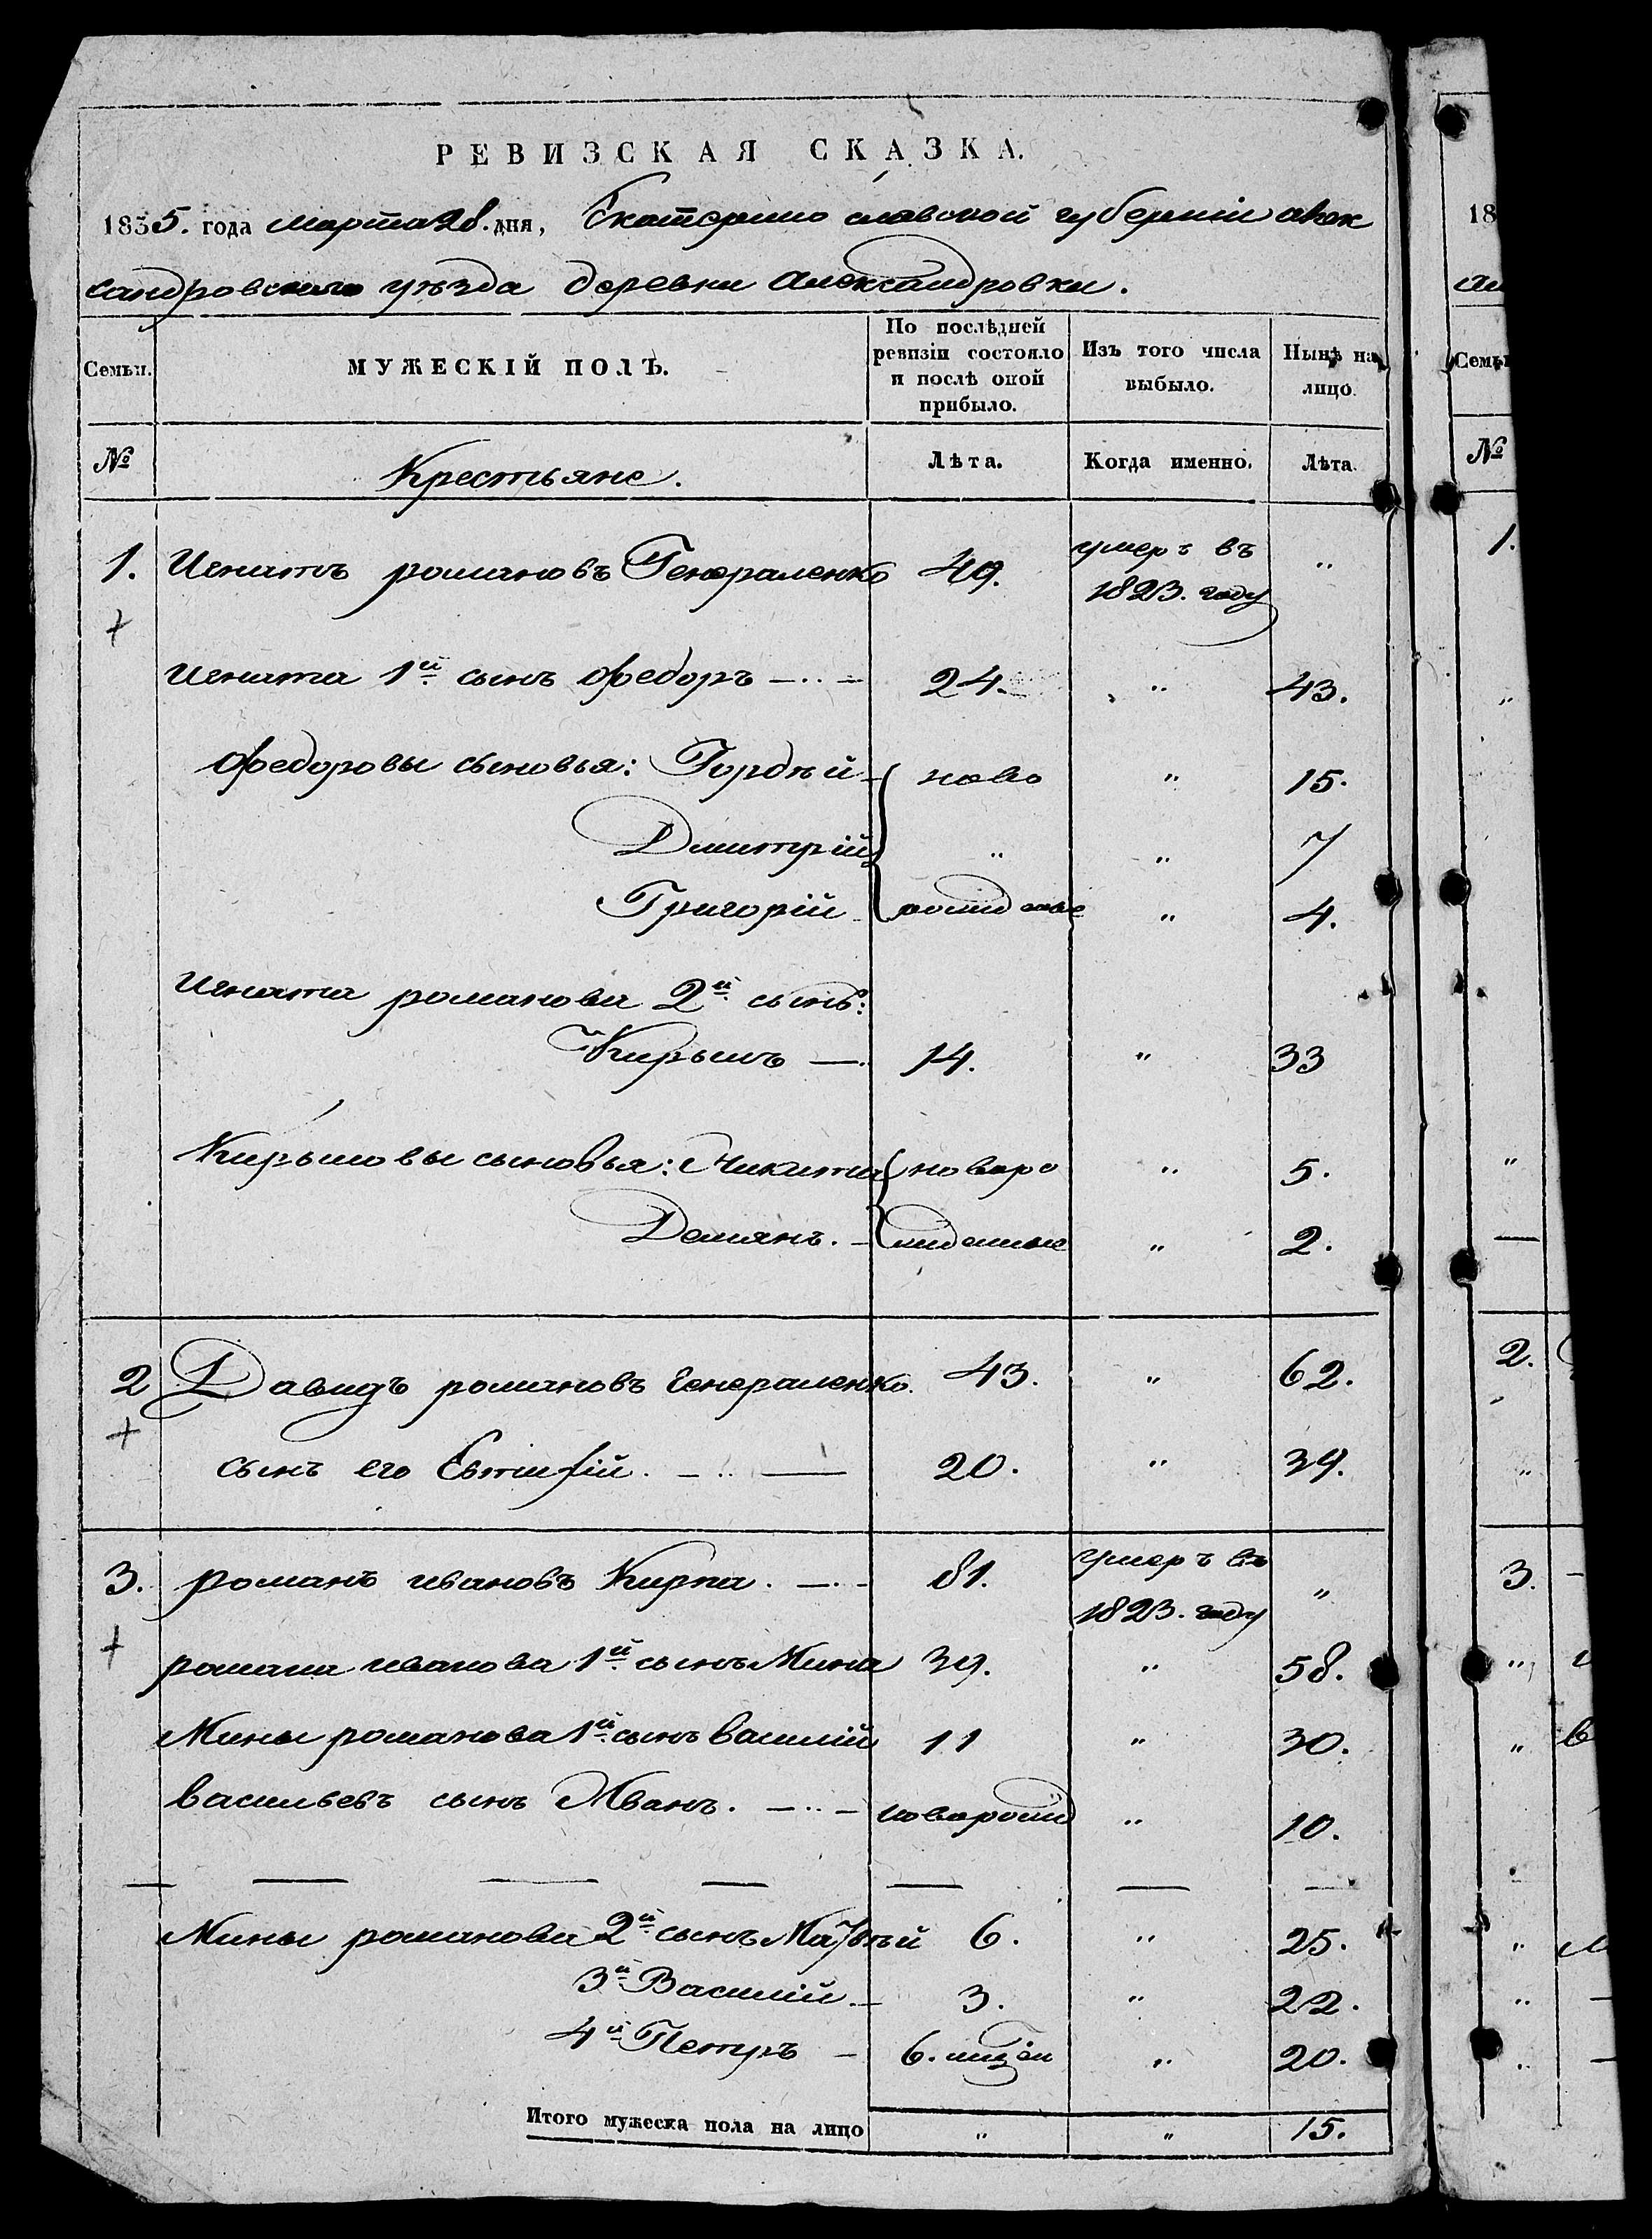 РЕВИЗСКАЯ СКАЗКА.
1835. года марта 28. дня, Екатерино славской губерніи алек
сандровского уѣзда деревни Александровки.
Семьи. МУЖЕСКІЙ ПОЛЪ. По послѣдней ревизіи состояло и послѣ оной прибыло. Изъ того числа выбыло. Нынѣ на лицо.
№ Крестьяне. Лѣта. Когда именно. Лѣта.
1. Игнатъ романовъ Генераленко 49. умеръ въ 1823. году "
Игната 1й сынъ Федоръ 24. " 43.
Федоровы сыновья: Гордѣй ново " 15.
Дмитрій " " 7
Григорій рожденные " 4.
Игната романова 2й сынъ:
Кирьянъ 14. " 33
Кирьяновы сыновья: Никита новоро " 5.
Демянъ. жденные " 2.
2 Давидъ романовъ Генераленко. 43. " 62.
сынъ его Евтифій. 20. " 39.
3. романъ ивановъ Кирпа. 81. умеръ въ 1823. году "
романа иванова 1й сынъ Мина 39. " 58.
Мины романова 1й сынъ василій 11 " 30.
васильевъ сынъ Иванъ. новорожд " 10.
Мины романова 2й сынъ Матвѣй 6. " 25.
3й Василій 3. " 22.
4й Петръ 6. " 20.
Итого мужеска пола на лицо " " 15.
18
ал
Семьи
№
1.
2.
3.